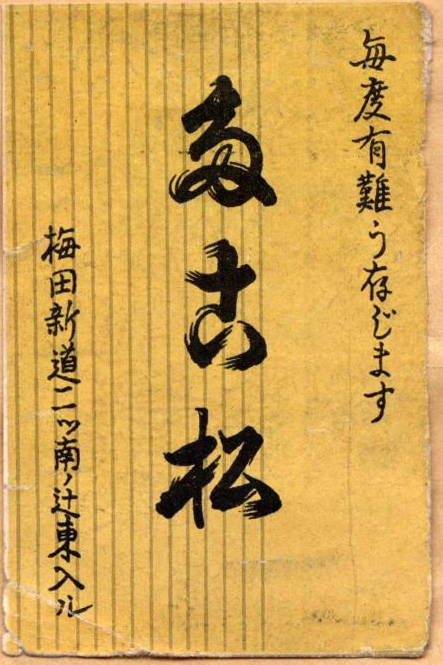 毎度有難う存じます
多古松
梅田新道二ッ南ノ辻東入ル